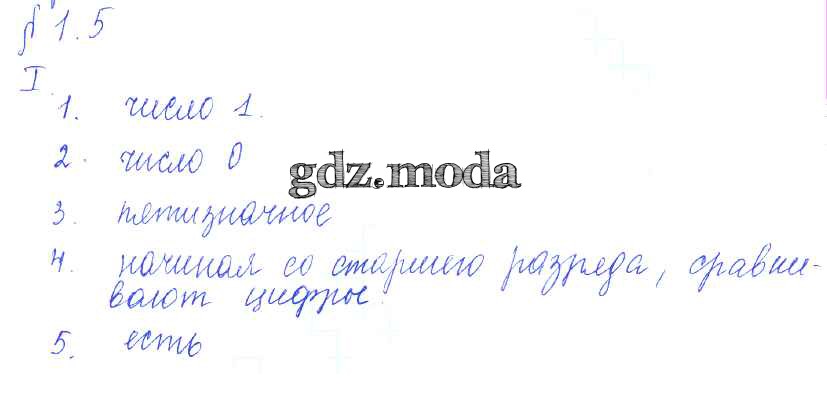 § 1.5
I
1. число 1.
2. число 0
gdz.moda
3. пятизначное
4. начиная со старшего разряда, сравни-
вают цифры.
5. есть